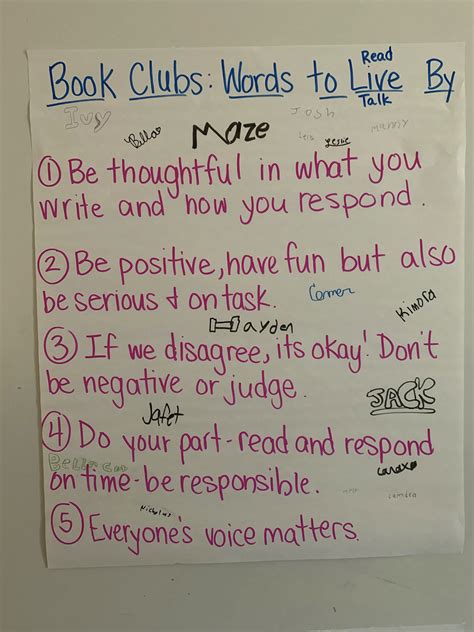 Read
Book Clubs: Words to Live By
Talk
Ivy
Josh
Bella
Maze
① Be thoughtful in what you
write and how you respond.
② Be positive, have fun but also
be serious & on task.
Conner
Kimora
Hayden
③ If we disagree, its okay! Don't
be negative or judge.
JACK
Jafet
④ Do your part - read and respond
on time - be responsible.
Nicholas
⑤ Everyone's voice matters.